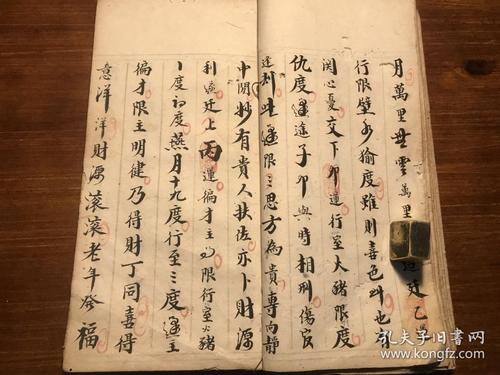 月萬里無雲萬里
行限壁水度雖則喜色也
関心憂交下卯運行室火豬限度
仇度逢子卯與時相刑傷官
逢限三思方為貴專向靜
中妙有貴人扶佐亦卜財源
利上丙運徧才主限行室火豬
度初度燕月十九度行至三度逢主
徧才限主明健乃得財丁同喜得
意洋洋財源滾滾老年發福
孔夫子旧書网
www.kongfz.com